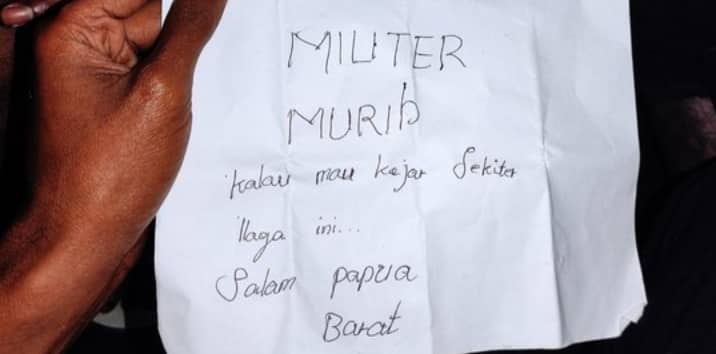 MILITER
MURIB
kalau mau kejar Sekiter
Ilaga ini...
Salam papua
Barat